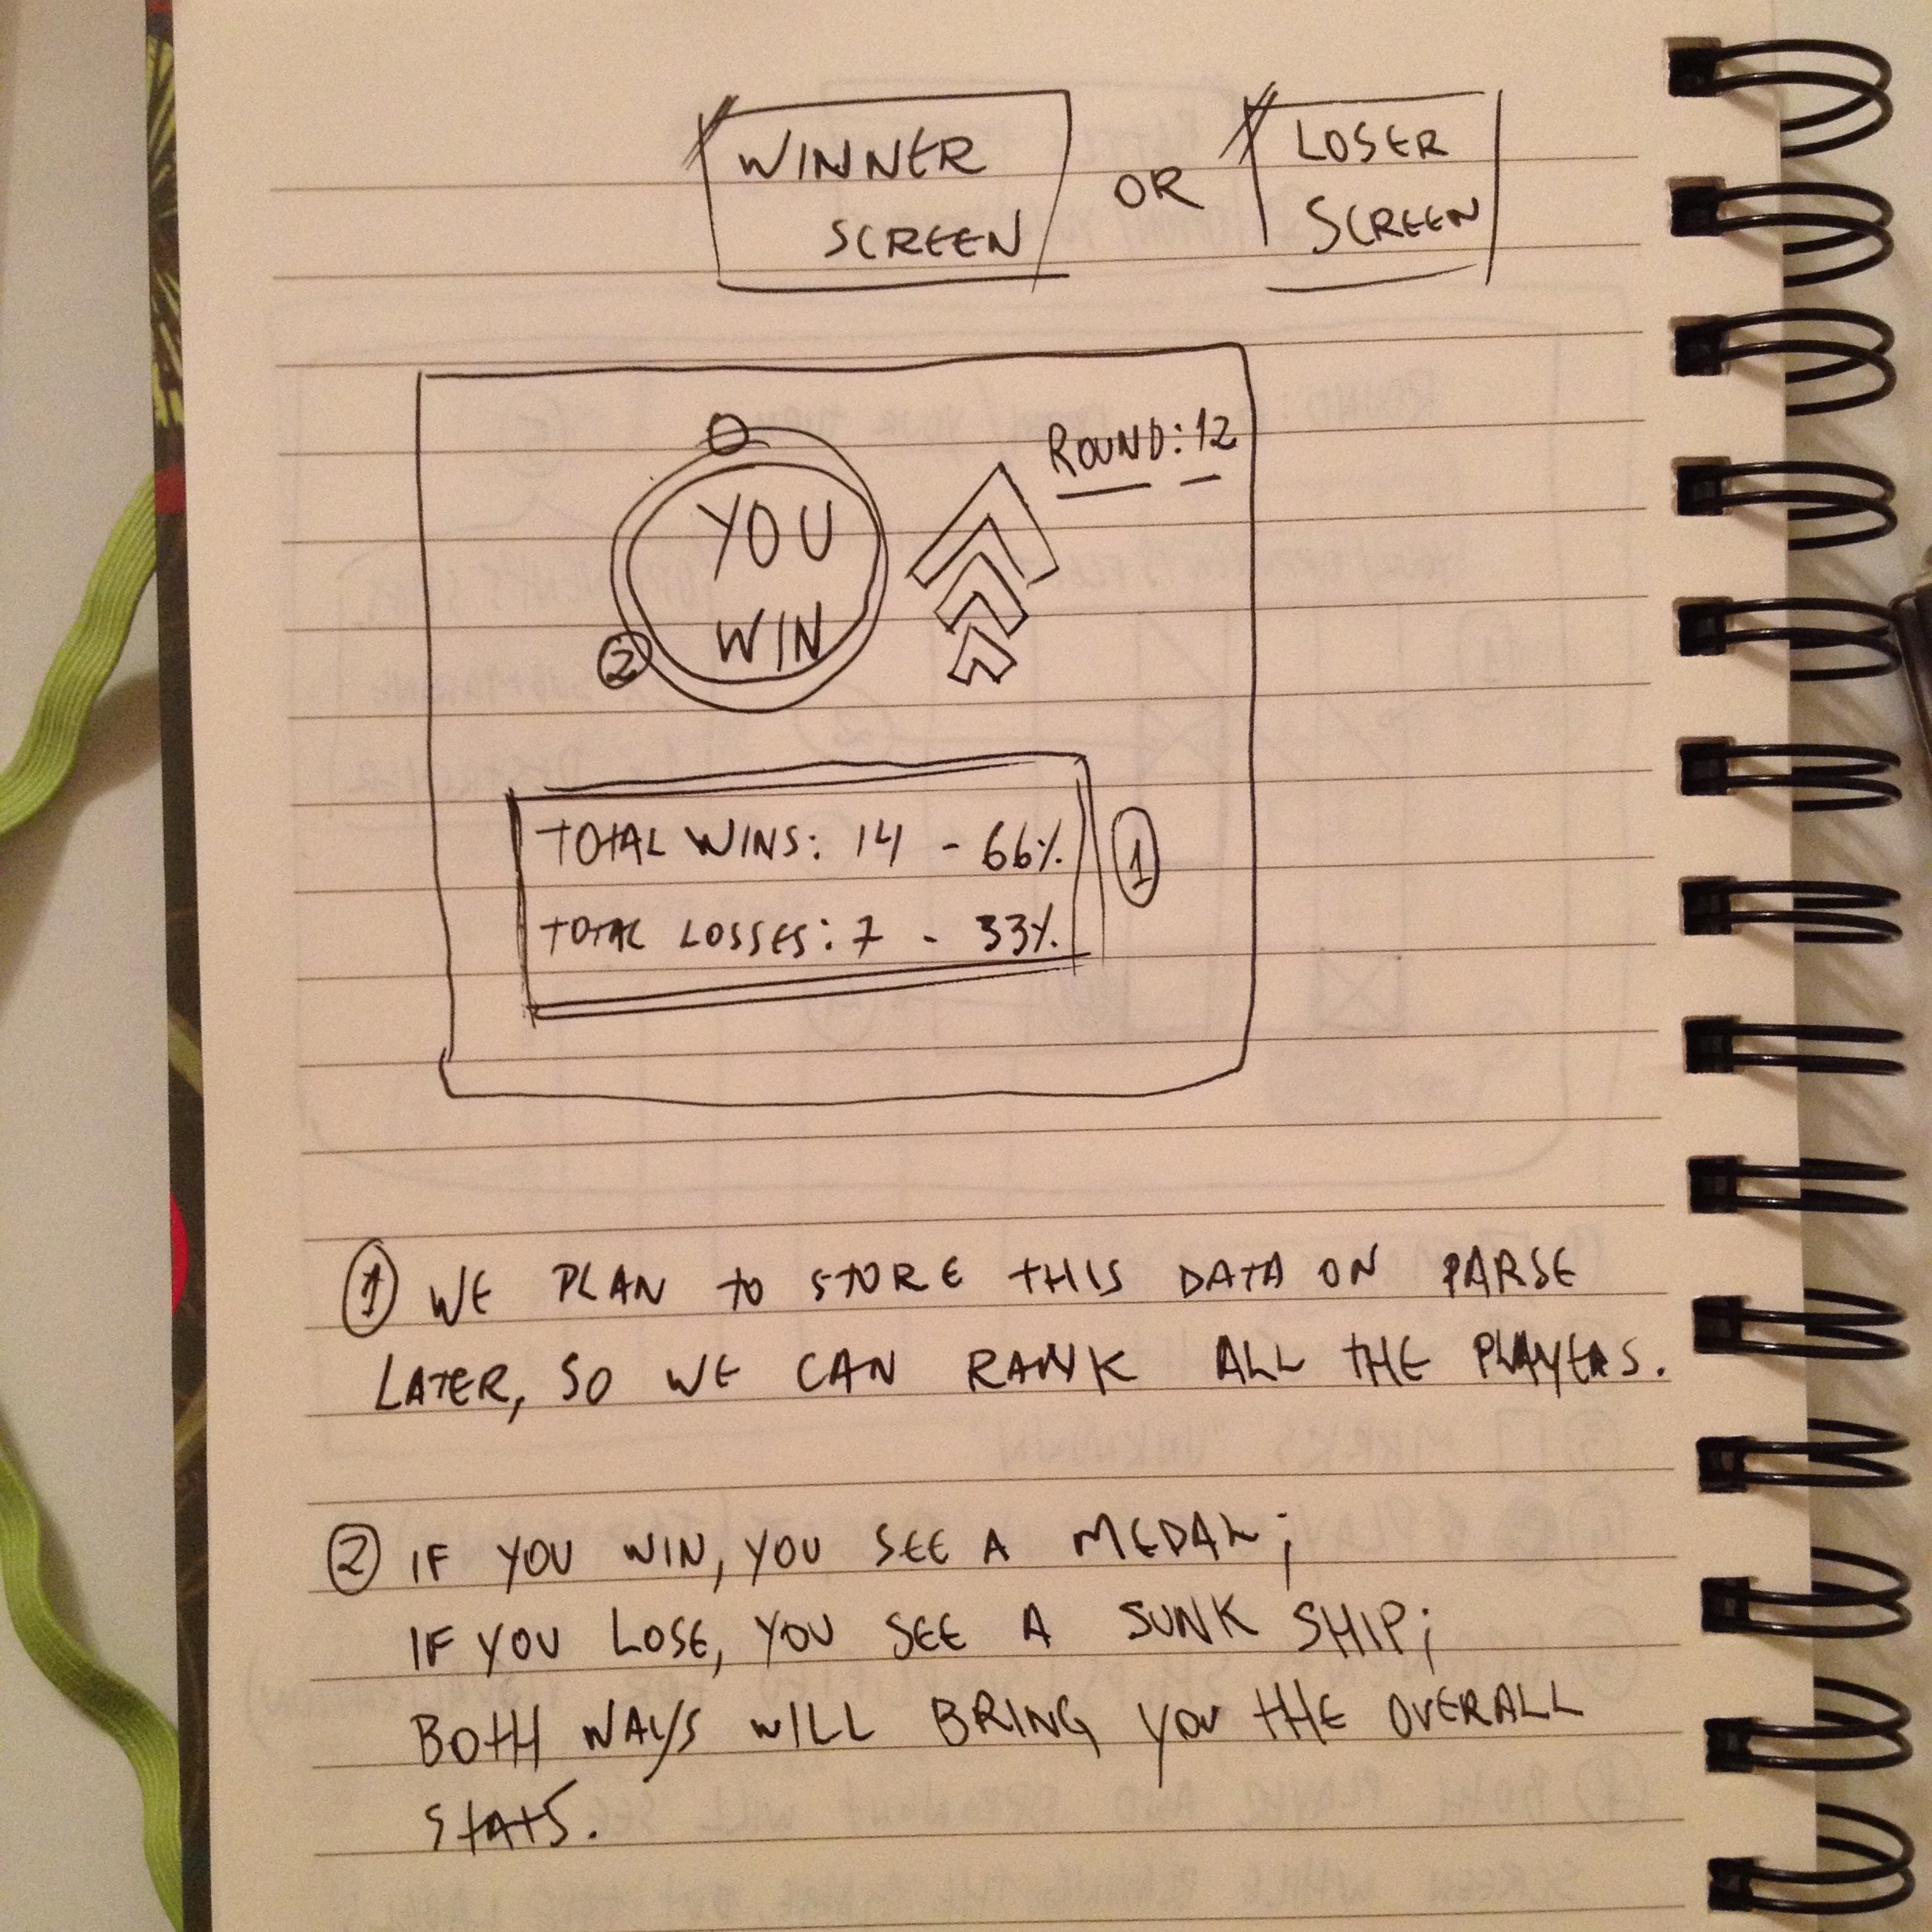 WINNER
SCREEN
OR
LOSER
SCREEN
ROUND: 12
YOU
WIN
2
TOTAL WINS: 14 - 66%
TOTAL LOSSES: 7 - 33%
1
1 WE PLAN TO STORE THIS DATA ON PARSE
LATER, SO WE CAN RANK ALL THE PLAYERS.
2 IF YOU WIN, YOU SEE A MEDAL;
IF YOU LOSE, YOU SEE A SUNK SHIP;
BOTH WAYS WILL BRING YOU THE OVERALL
STATS.